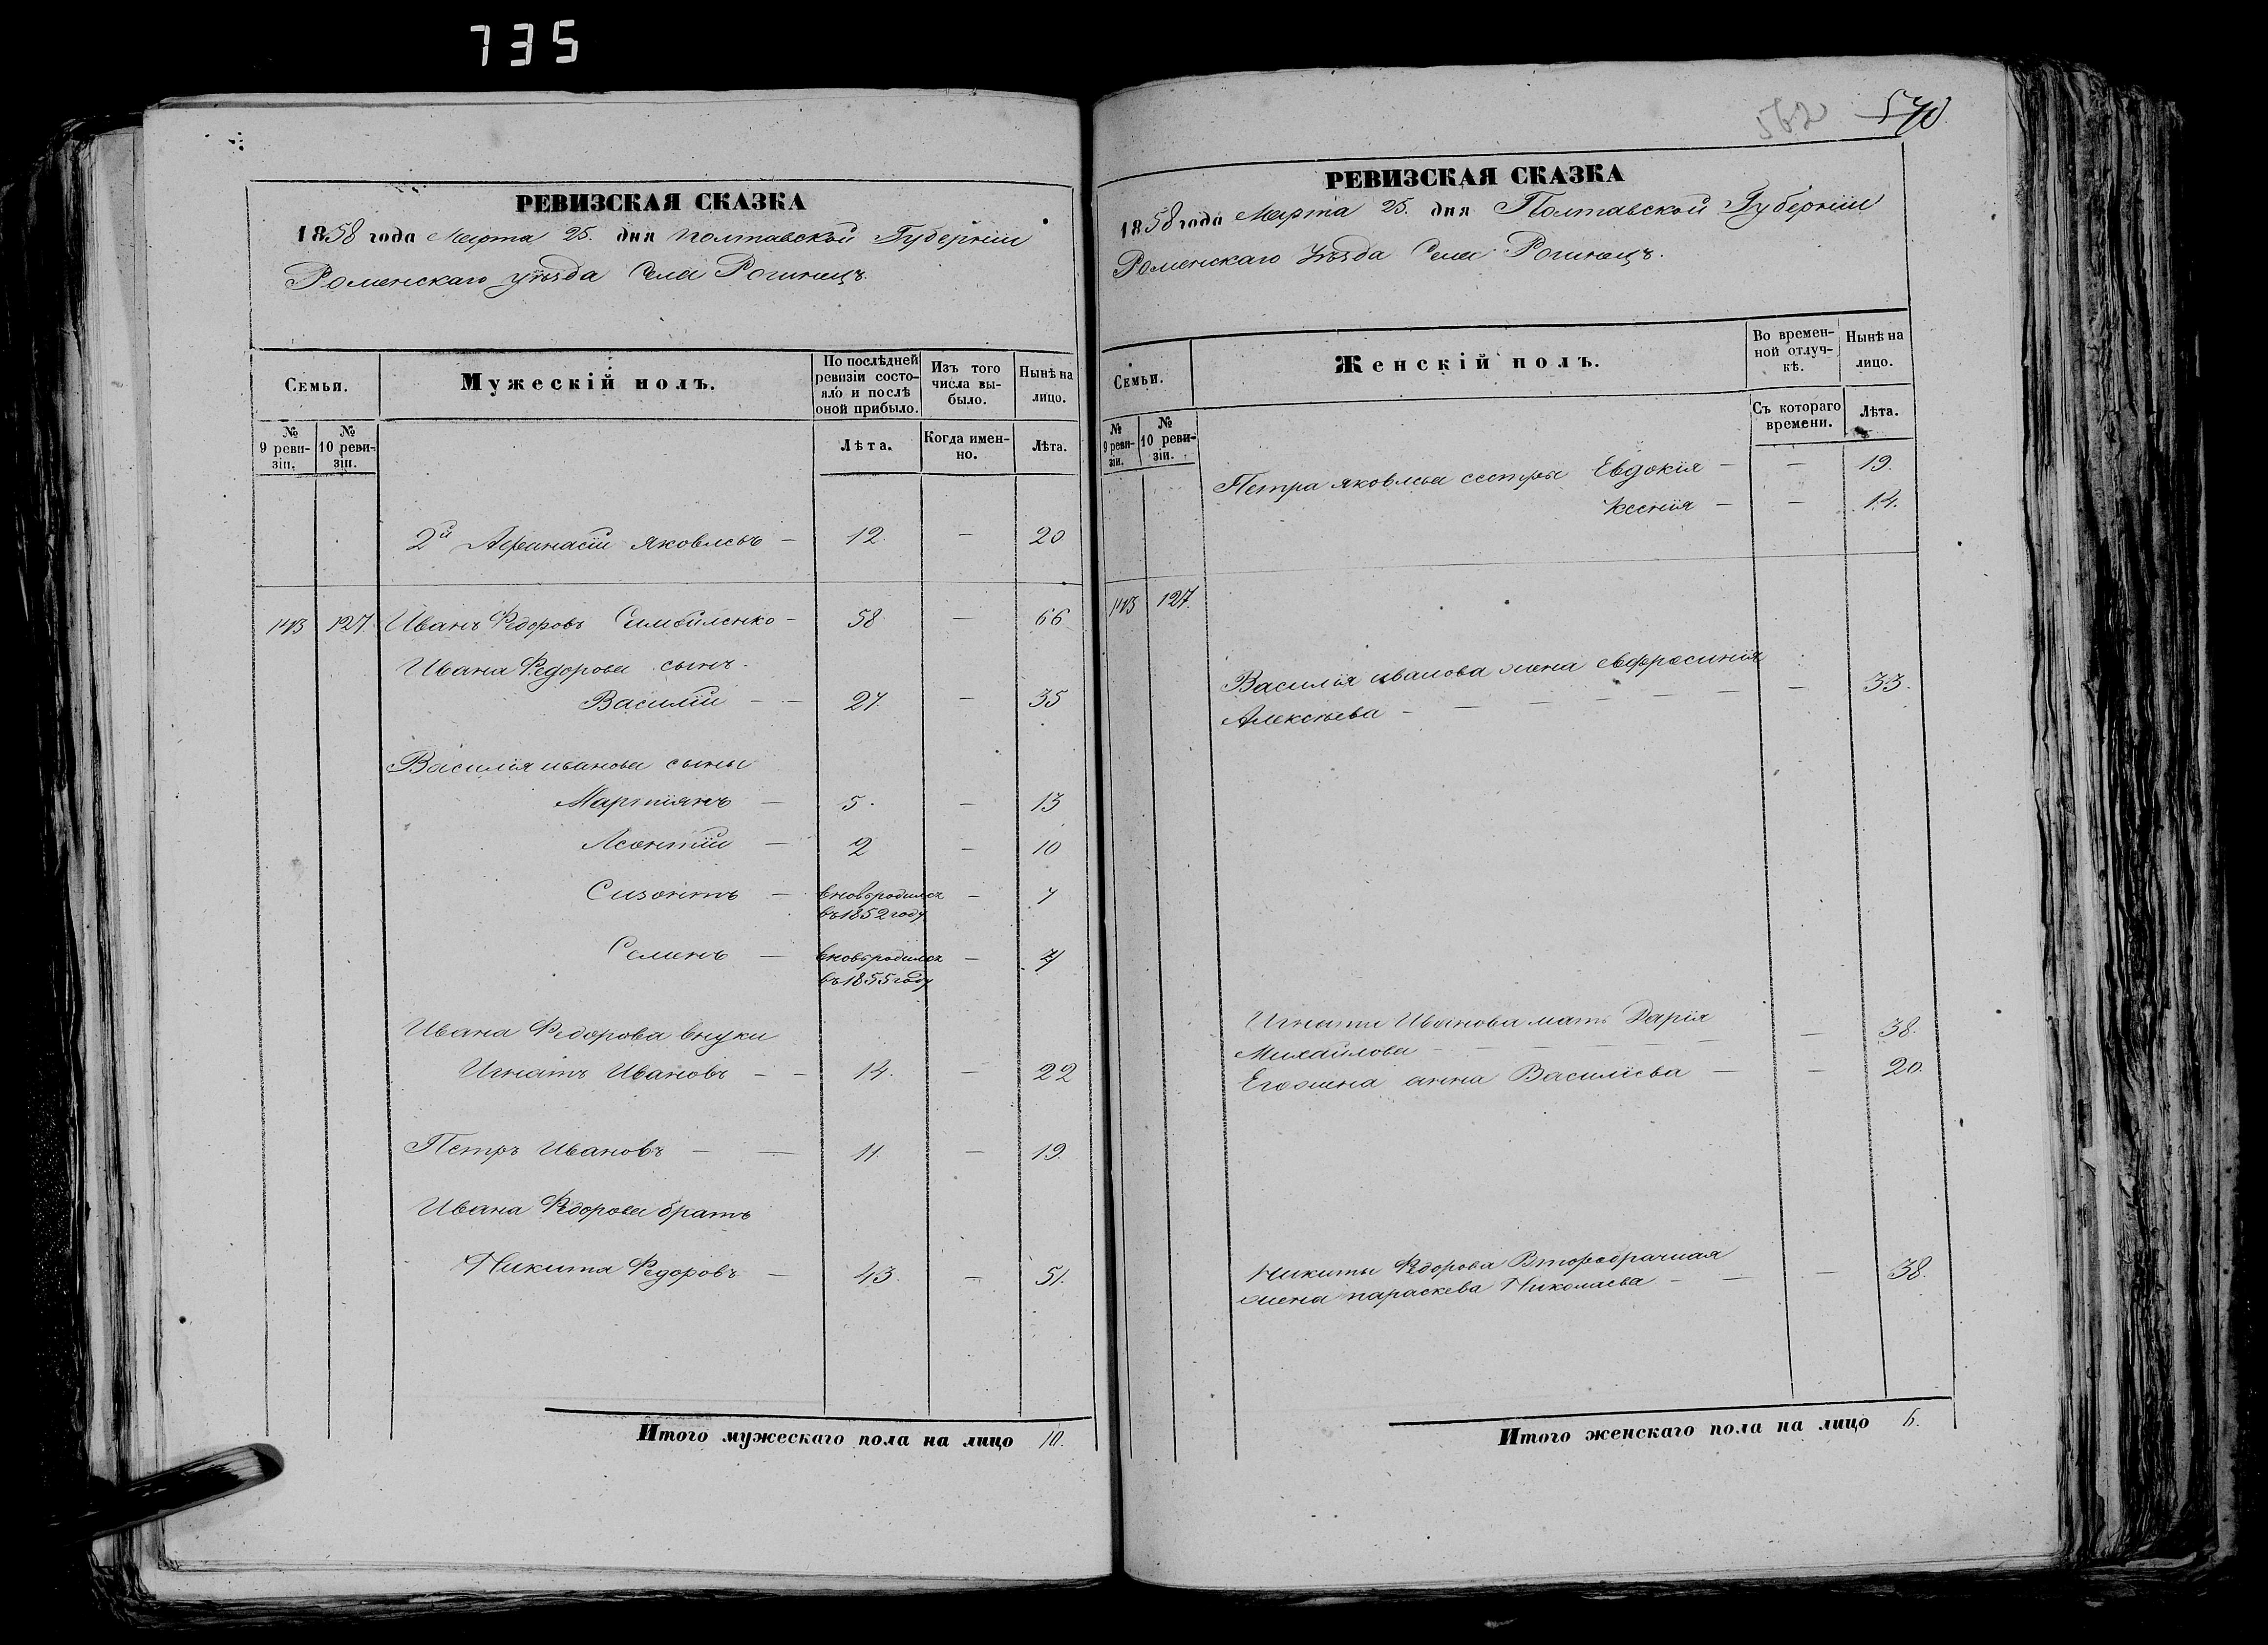 735
РЕВИЗСКАЯ СКАЗКА
1858 года Марта 25. дня Полтавской Губерніи
Роменскаго уѣзда Села Рогинецъ.
Семьи.
Мужескій полъ.
По послѣдней ревизіи состояло и послѣ оной прибыло.
Изъ того числа выбыло.
Нынѣ на лицо.
№ 9 ревизіи.
№ 10 ревизіи.
Лѣта.
Когда именно.
Лѣта.
2й Афанасій Яковлевъ — 12. — 20
127. Иванъ Федоровъ — 58 — 66
Ивана Федорова сынъ.
Василій — — 27. — 35
Василія иванова сыны
Мартіянъ — 5. — 13
Леонтій — 2 — 10
Сизонтъ — вновьродился — 7
въ 1852 году
Семенъ — вновьродился —
въ 1855 году
Ивана Федорова внуки
Игнатъ Ивановъ — — 14. — 22
Петръ Ивановъ — — 11. — 19.
Ивана Федорова братъ
Никита Федоровъ — 43. — 51.
Итого мужескаго пола на лицо 10.
562 570
РЕВИЗСКАЯ СКАЗКА
1858 года Марта 25. дня Полтавской Губерніи
Роменскаго Уѣзда Села Рогинецъ.
Семьи.
Женскій полъ.
Во временной отлучкѣ.
Нынѣ на лицо.
№ 9 ревизіи.
№ 10 ревизіи.
Съ котораго времени.
Лѣта.
Петра яковлева сестры Евдокія — — 19.
Ксенія — — 14.
127.
Василія иванова жена евфросинія
Алексѣева — — — — — — 33.
Игната Иванова мать Дарія
Михайлова — — — — — — 38.
Егожена анна Василіева — — 20.
Никиты Федорова Второбрачная
жена параскева Николаева — — — 38.
Итого женскаго пола на лицо 6.